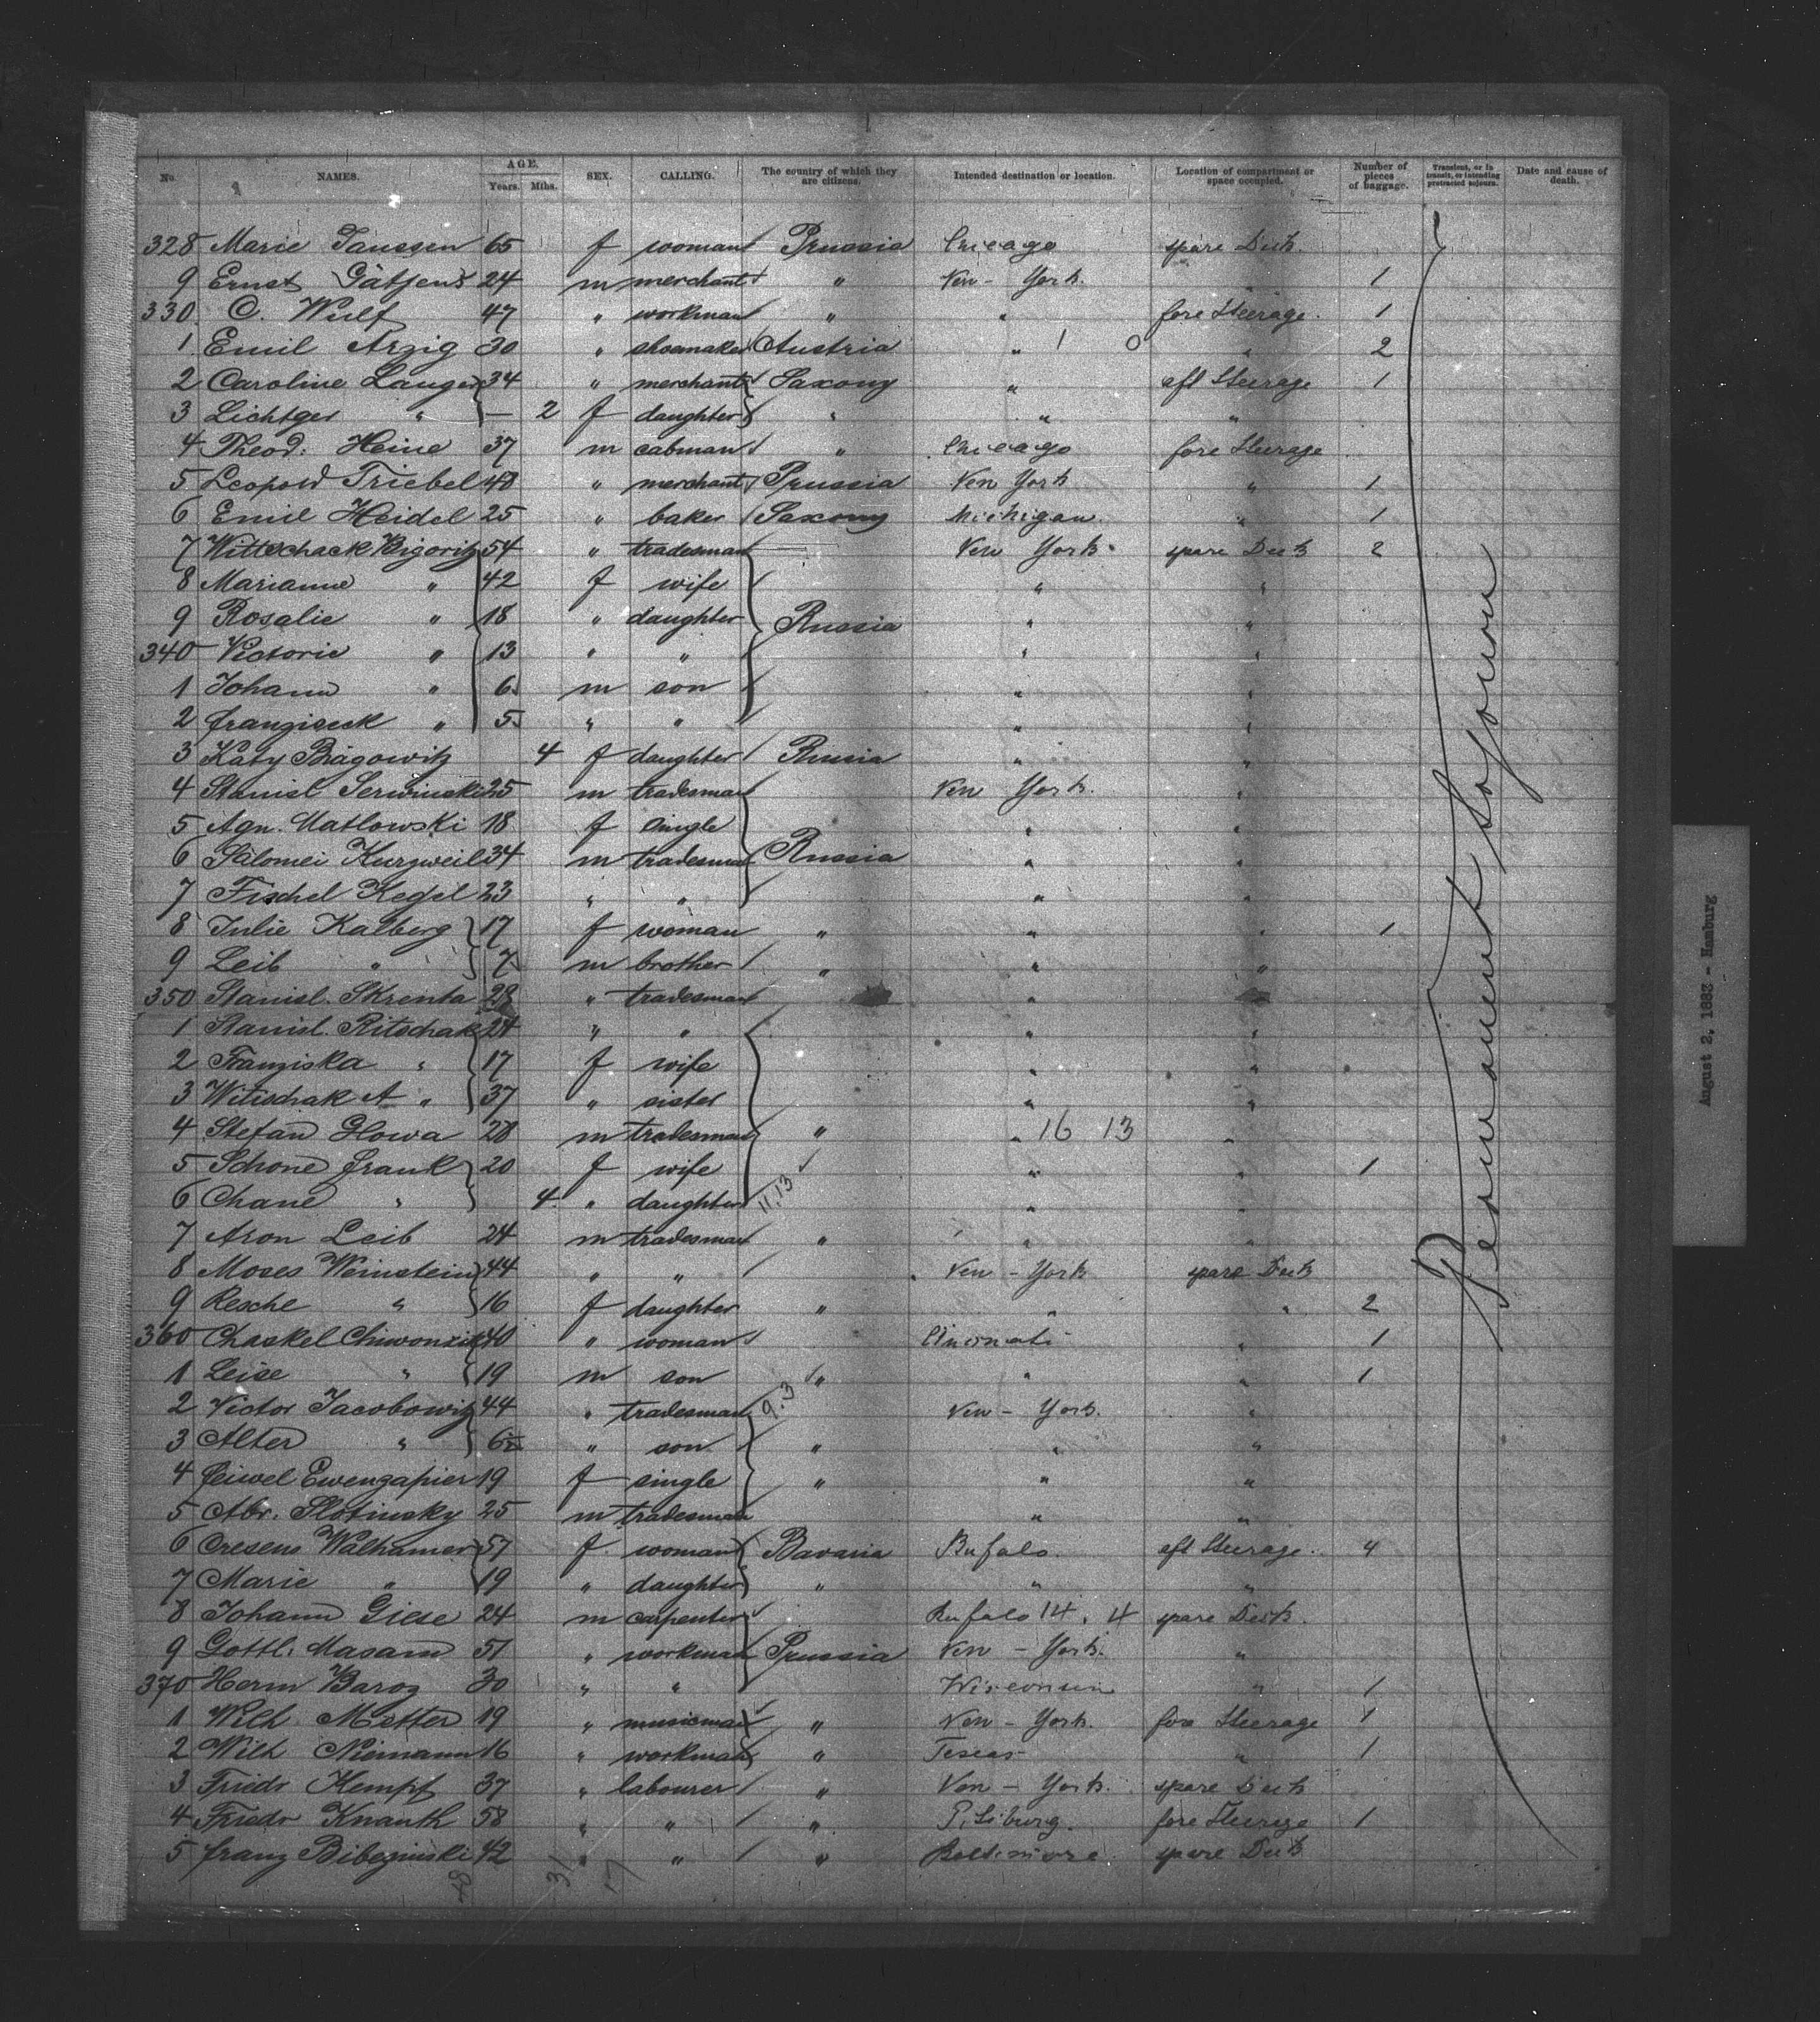 No. NAMES. AGE. Years. Mths. SEX. CALLING. The country of which they are citizens. Intended destination or location. Location of compartment or space occupied. Number of pieces of baggage. Transient, or in transit, or intending protracted sojourn. Date and cause of death.
328 Marie Janssen 65 f woman Prussia Chicago spare Deck
9 Ernst Gätjens 24 m merchant " New-York. " 1
330 C. Wulf 47 " workman " " fore Steerage. 1
1 Emil Arzig 30 " shoemaker Austria " 1 0 " 2
2 Caroline Langer 34 " merchant Saxony " aft Steerage 1
3 Lichtger " — 2 f daughter " " "
4 Theod. Heine 37 m cabman " Chicago fore Steerage
5 Leopold Triebel 48 " merchant Prussia New York " 1
6 Emil Heidel 25 " baker Saxony Michigan. " 1
7 Wittschack Bigoritz 54 " tradesman New York. spare Deck 2
8 Marianne " 42 f wife " "
9 Rosalie " 18 " daughter Russia " "
340 Victorie " 13 " " " "
1 Johann " 6 m son " "
2 Franziseck " 5 " " " "
3 Katy Bragowitz 4 f daughter Russia " "
4 Stanisl Serwinski 25 m tradesman New York. "
5 Agn. Matlowski 18 f single " "
6 Salomei Kurzweil 34 m tradesman Russia " "
7 Fischel Kegel 23 " " " "
8 Julie Kalberg 17 f woman " " " 1
9 Leib " 7 m brother " " "
350 Stanisl. Skrenta 29 " tradesman "
1 Stanisl. Ritschak 24 " " " "
2 Franziska " 17 f wife " "
3 Witischak A " 37 " sister " "
4 Stefan Glowa 28 m tradesman " " 16 13 "
5 Schone Frank 20 f wife " " 1
6 Chane " 4 " daughter 11.13 " "
7 Aron Leib 24 m tradesman " " "
8 Moses Weinstein 44 " " New-York spare Deck
9 Resche " 16 f daughter " " " 2
360 Chaskel 40 " woman Cincinati " 1
1 Leise " 19 m son " " " 1
2 Victor Jacobowitz 44 " tradesman 9.3 New-York. "
3 Alter " 6 " son " " "
4 Feiwel Ewenzapier 19 f single " " "
5 Abr. Slotinsky 25 m tradesman " "
6 Cresens Walhamer 57 f woman Bavaria Bufalo. aft Steerage. 4
7 Marie " 19 " daughter " " "
8 Johann Giese 24 m carpenter Bufalo 14. 4 spare Deck.
9 Gottl. Masam 51 " workman Prussia New-York. "
370 Herm Baroz 30 " " Wisconsin " 1
1 Wilh. Metter 19 " musicman " New-York. fore Steerage 1
2 Wilh Niemann 16 " workman " Texas " 1
3 Friedr Kempf 37 " labourer " New-York. spare Deck
4 Friedr Knauth 58 " " " fore Steerage 1
5 Franz Bibezinski 42 " " " Baltimore. spare Deck
84 31 17
Permanent sojourn
August 2, 1883 - Hamburg